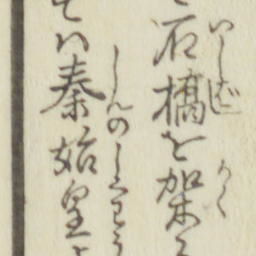 石橋を架る
いしばし
かく
ては秦始皇
しんのしくわう